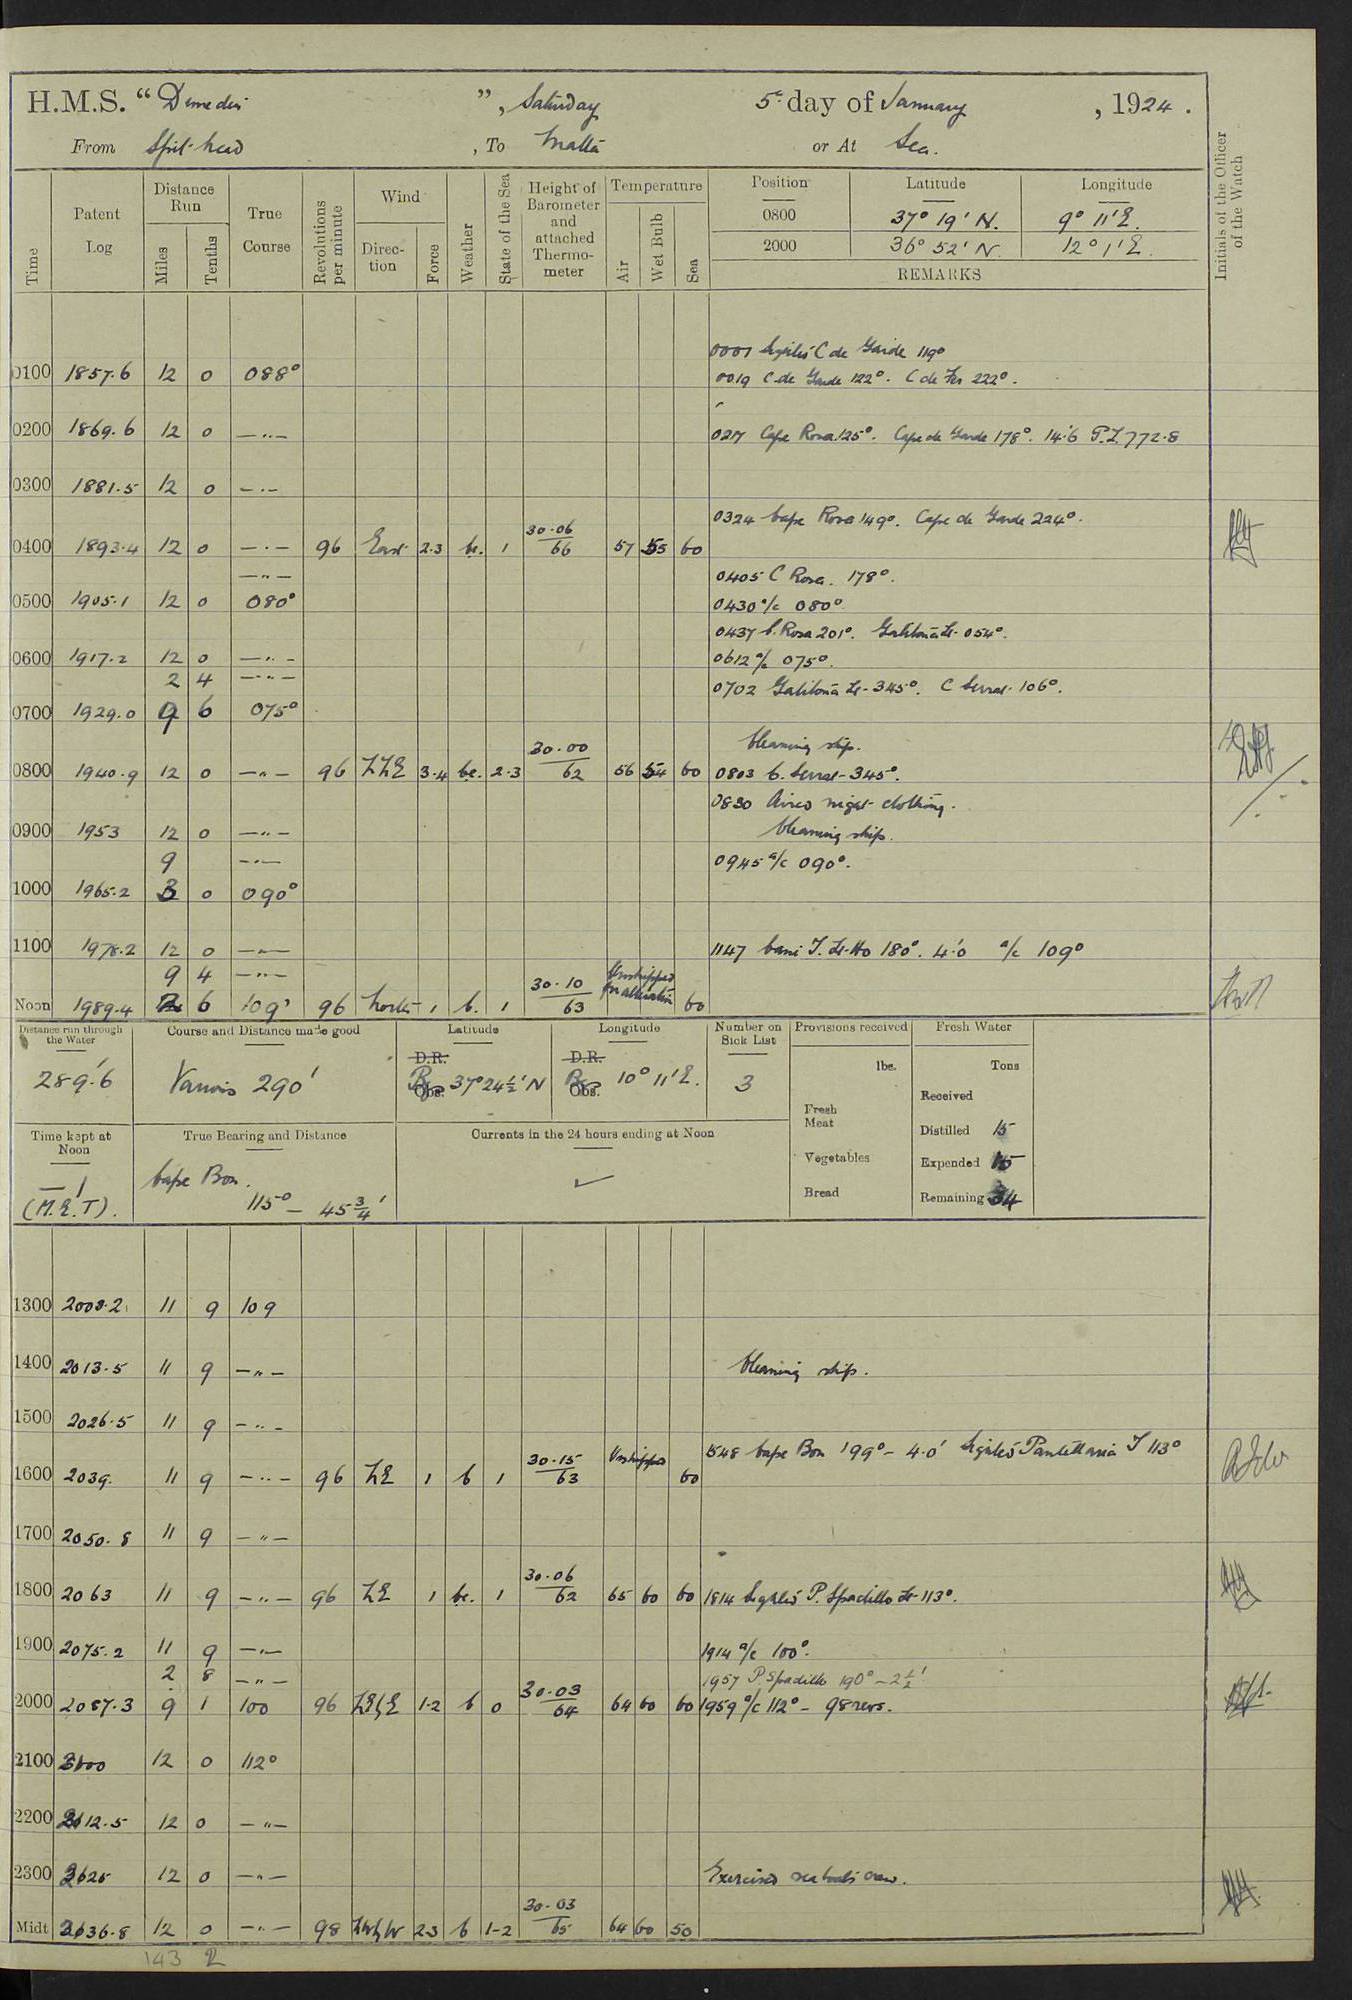 H.M.S. " ", Saturday 5th day of January, 1924.
From Spit-head, To Malta or At Sea.
Time Patent Log Distance Run Miles Tenths True Course Revolutions per minute Wind Direction Force Weather State of the Sea Height of Barometer and attached Thermometer Temperature Air Wet Bulb Sea Position Latitude Longitude Initials of the Officer of the Watch
0800 37° 19' N. 9° 11' E.
2000 36° 52' N. 12° 1' E.
REMARKS
0001 C de Garde 119°
0100 1857.6 12 0 088° 0019 C. de Garde 122°. C de Fer 222°.
0200 1869.6 12 0 —"— 0217 Cape Rosa 125°. Cape de Garde 178°. 14'.6 P.L. 772.8
0300 1881.5 12 0 —"—
0324 Cape Rosa 149°. Cape de Garde 224°.
0400 1893.4 12 0 —"— 96 East 2.3 bc. 1 30.06/66 57 55 60
—"— 0405 C Rosa. 178°.
0500 1905.1 12 0 080° 0430 a/c 080°
0437 C. Rosa 201°. Galitona Lt. 054°.
0600 1917.2 12 0 —"— 0612 a/c 075°.
2 4 —"—
0702 Galitona Lt. 345°. C Serrat. 106°.
0700 1929.0 9 6 075°
Cleaning ship.
0800 1940.9 12 0 —"— 96 3.4 bc. 2.3 30.00/62 56 54 60 0803 C. Serrat 345°.
0830 Aired night clothing.
0900 1953 12 0 —"— Cleaning ship.
9 —"— 0945 a/c 090°.
1000 1965.2 3 0 090°
1100 1978.2 12 0 —"— 1147 Cani I. Lt. Ho 180°. 4'.0 a/c 109°
9 4 —"—
Noon 1989.4 2 6 109° 96 North 1 b. 1 30.10/63 Unshipped for alteration 60
Distance run through the Water Course and Distance made good Latitude Longitude Number on Sick List Provisions received Fresh Water
289'.6 Various 290' D.R. Obs. 37° 24½' N D.R. Obs. 10° 11' E. 3
lbs. Tons
Received
Fresh Meat
Distilled 15
Vegetables Expended 15
Bread Remaining 34
Time kept at Noon True Bearing and Distance Currents in the 24 hours ending at Noon
—1 (M.E.T). Cape Bon. 115° — 45¾' ✓
1300 2000.2 11 9 109
1400 2013.5 11 9 —"— Cleaning ship.
1500 2026.5 11 9 —"—
1548 Cape Bon 199° – 4.0' Sighted Pantellaria I 113°
1600 2039. 11 9 —"— 96 1 b 1 30.15/63 Unshipped 60
1700 2050.8 11 9 —"—
1800 2063 11 9 —"— 96 1 bc. 1 30.06/62 65 60 60 1814 Sighted P. Spadillo Lt. 113°.
1900 2075.2 11 9 —"— 1914 a/c 100°.
2 8 —"— 1957 P. Spadillo 190° – 2½'
2000 2087.3 9 1 100 96 1-2 b 0 30.03/64 64 60 60 1959 a/c 112° – 98 revs.
2100 2100 12 0 112°
2200 2112.5 12 0 —"—
2300 2125 12 0 —"— Exercised sea boat's crew.
Midt 2136.8 12 0 —"— 98 2.3 b 1-2 30.03/65 64 60 50
143 2